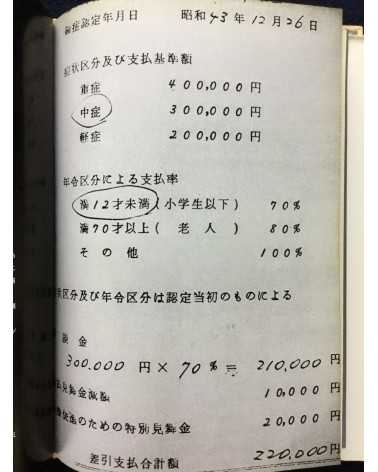 症認定年月日 昭和43年12月26日
症状区分及び支払基準額
重症 400,000円
中症 300,000円
軽症 200,000円
年令区分による支払率
満12才未満(小学生以下) 70%
満70才以上(老人) 80%
その他 100%
状区分及び年令区分は認定当初のものによる
金
300.000 円 × 70% = 210,000円
見舞金 10,000円
のための特別見舞金 20,000円
差引支払合計額 220,000円